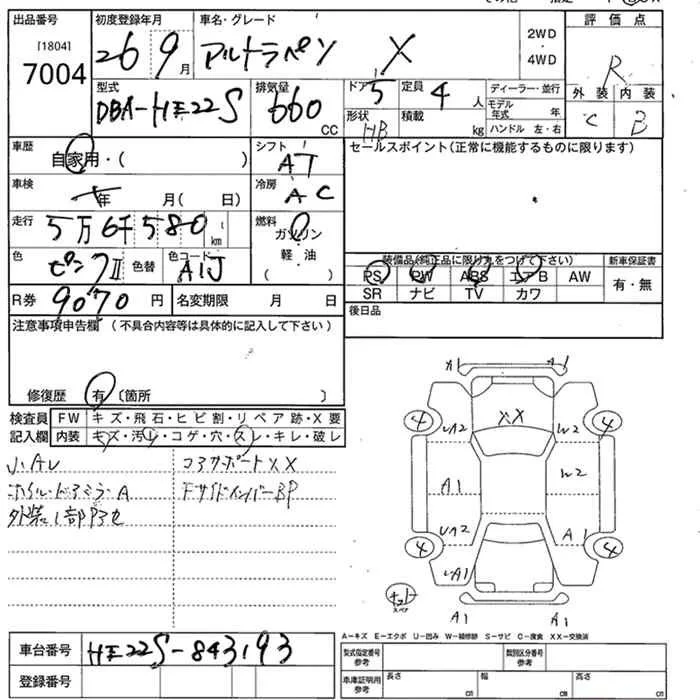 出品番号
[1804]
7004
初度登録年月
26 9月
車名・グレード
アルトラパン X
2WD
・
4WD
評価点
R
外装 内装
C B
型式
DBA-HE22S
排気量
660
CC
ドア
5
定員
4
人
形状
HB
積載
kg
ディーラー・並行
モデル
年式 年
ハンドル 左・右
車歴
自家用・( )
シフト
AT
セールスポイント(正常に機能するものに限ります)
車検
年 月( 日)
冷房
AC
走行
5万6千580
km
燃料
ガソリン
軽・油
( )
色
ピンクII
色替
色コード
A1J
装備品(純正品に限り丸をつけて下さい)
新車保証書
PS PW ABS エアB AW
有・無
SR ナビ TV カワ
R券
9070円
名変期限 月 日
後日品
注意事項申告欄 (不具合内容等は具体的に記入して下さい)
修復歴 有 〔箇所 〕
検査員
記入欄
FW キズ・飛石・ヒビ割・リペア跡・X要
内装 キズ・汚レ・コゲ・穴・スレ・キレ・破レ
小AU
コアサポートXX
ホイル・ドアミラーA
FサイドメンバーBP
A1 A1
XX
4 4
UA2 W2
W2
A1
UA2 A1
4 4
UA1
スペア
A1 A1
A−キズ E−エクボ U−凹み W−補修跡 S−サビ C−腐食 XX−交換済
車台番号
HE22S-843193
登録番号
型式指定番号
参考
類別区分番号
参考
車庫証明用
参考
長さ
cm
幅
cm
高さ
cm